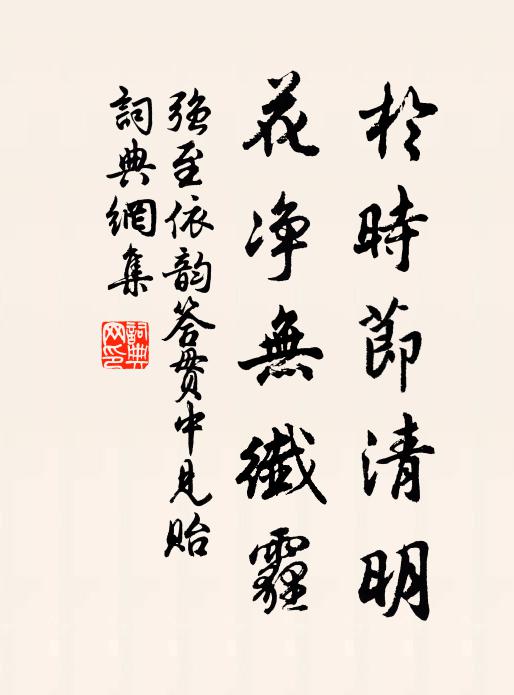 於時節清明
花净無纖霾
强至依韵答贯中見貽
詞典網集
詞典
网印